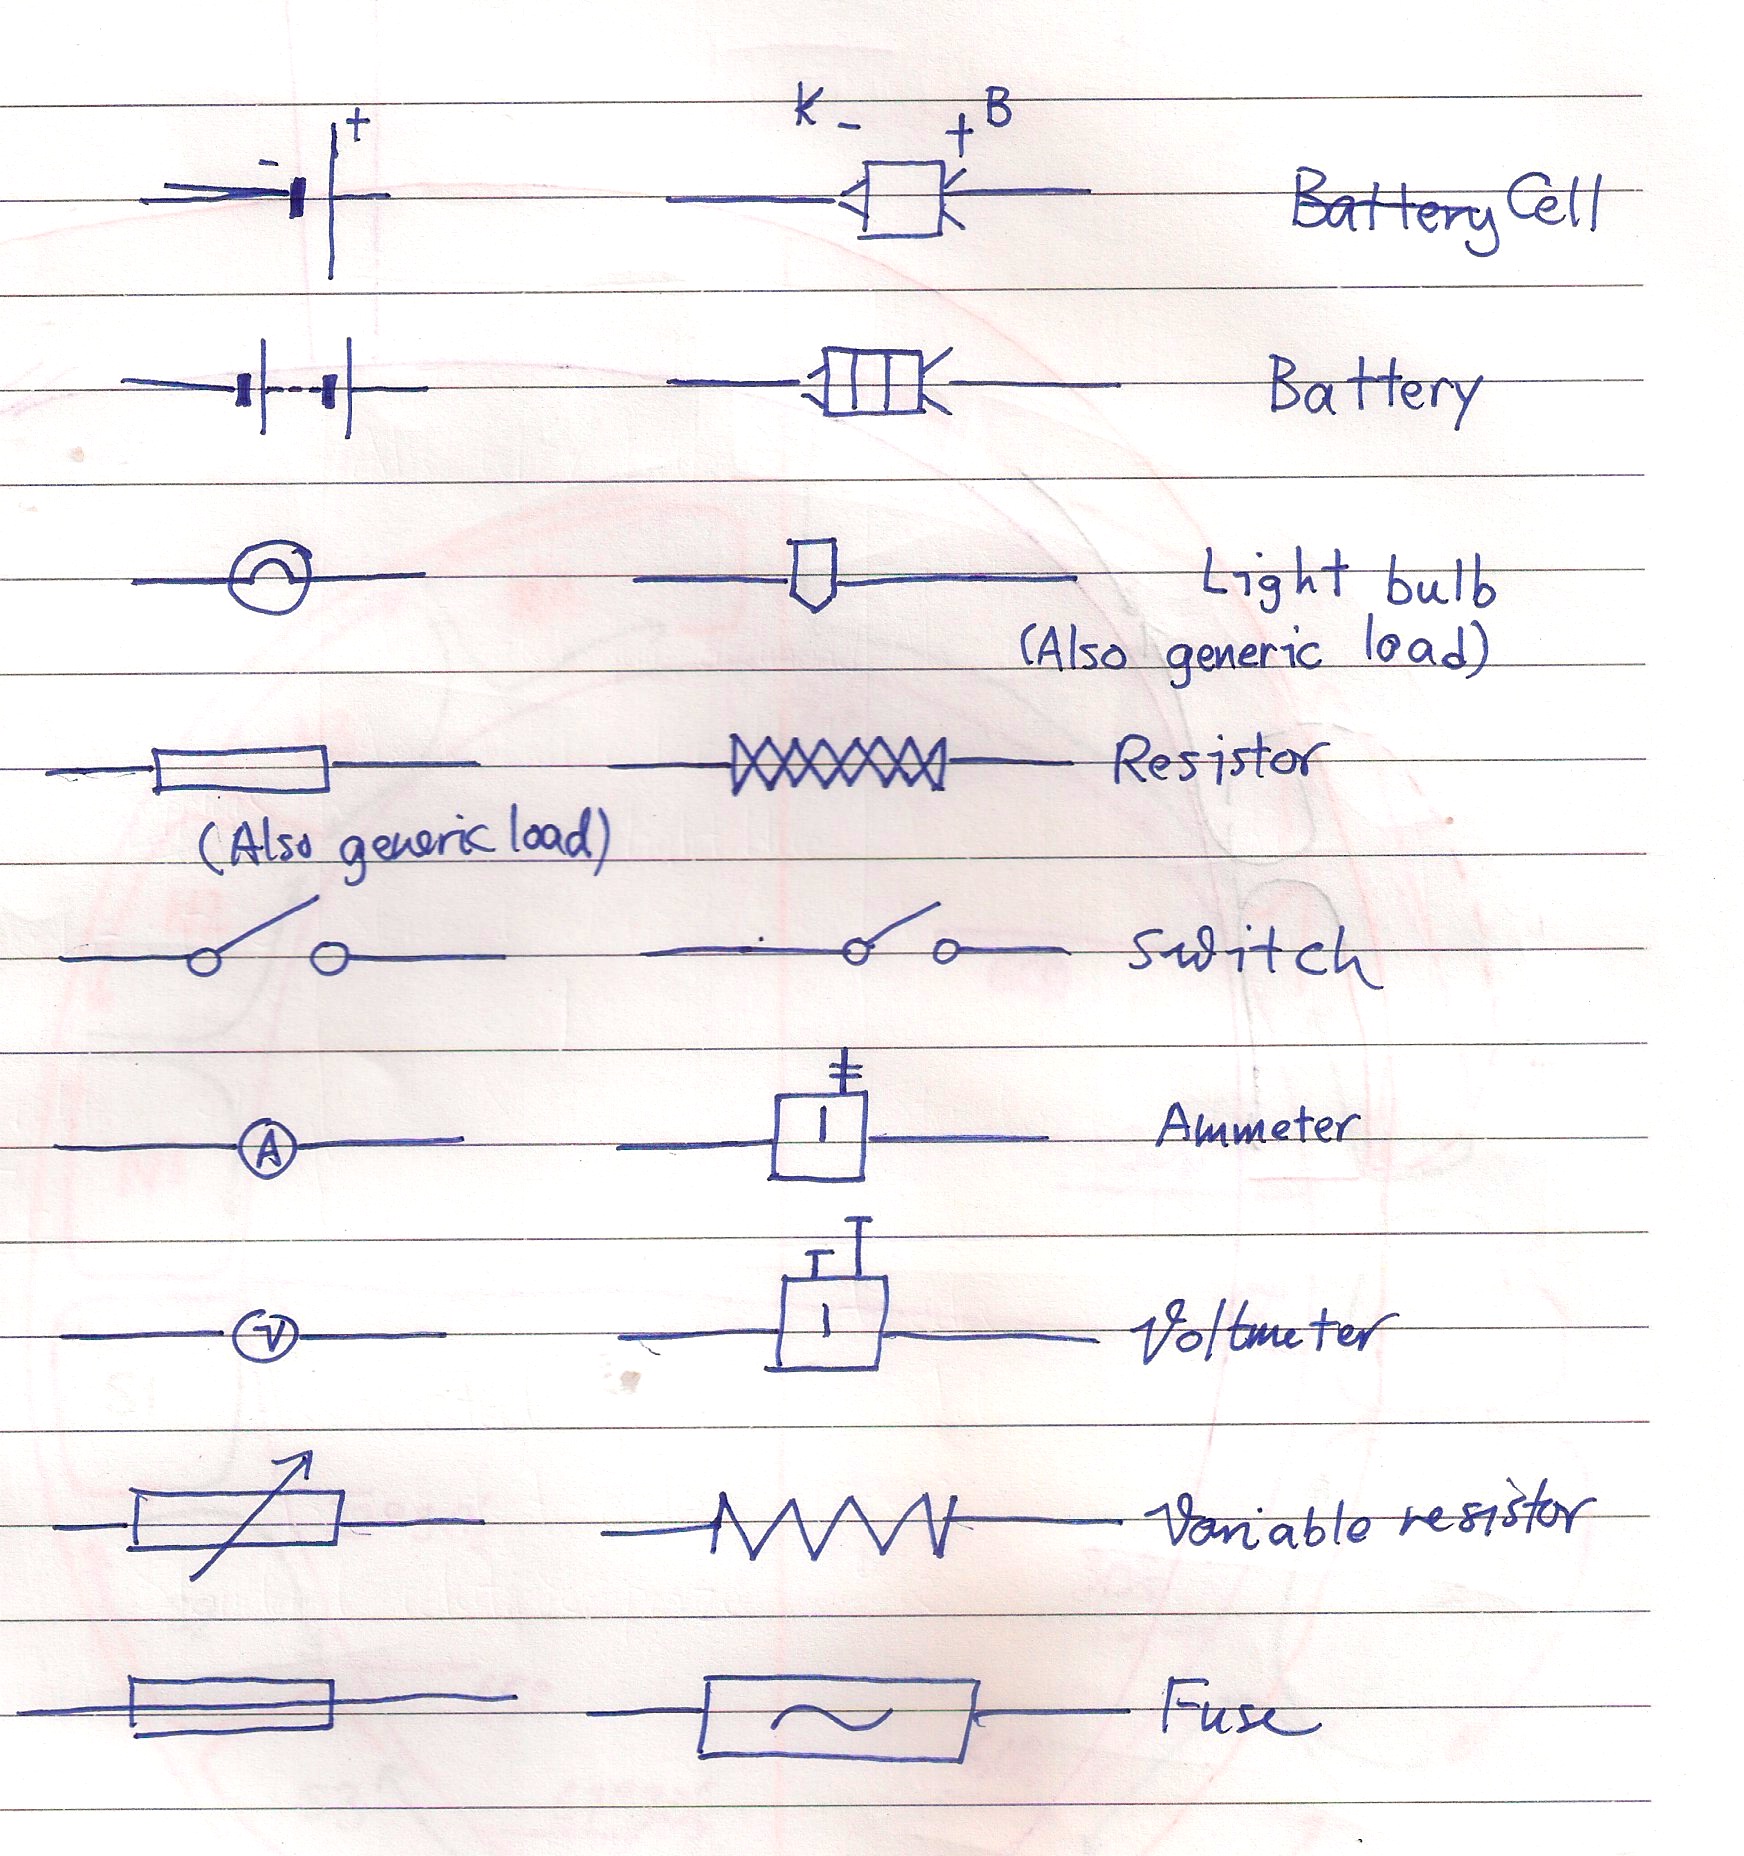 - +
K - + B
Battery Cell
Battery
Light bulb
(Also generic load)
Resistor
(Also generic load)
Switch
A
Ammeter
V
Voltmeter
Variable resistor
Fuse